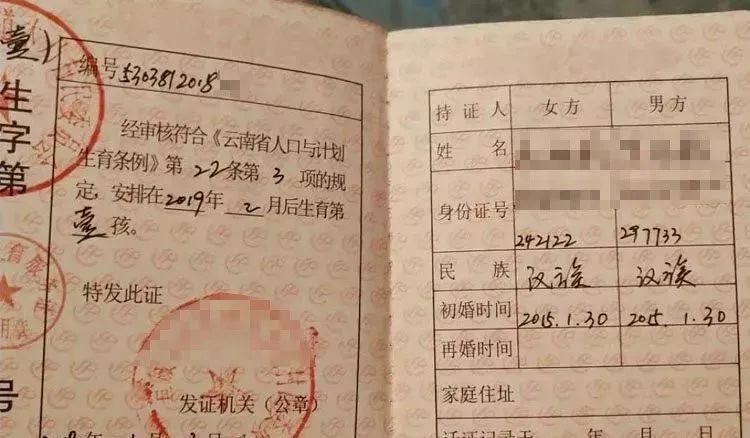 壹）
生
字
第
号
编号5303812018
经审核符合《云南省人口与计划
生育条例》第 22 条第 3 项的规
定，安排在2019年 2 月后生育第
壹 孩。
特发此证
发证机关（公章）
持证人 女方 男方
姓名
身份证号
242122 297733
民族 汉族 汉族
初婚时间 2015.1.30 2015.1.30
再婚时间
家庭住址
年 月 日